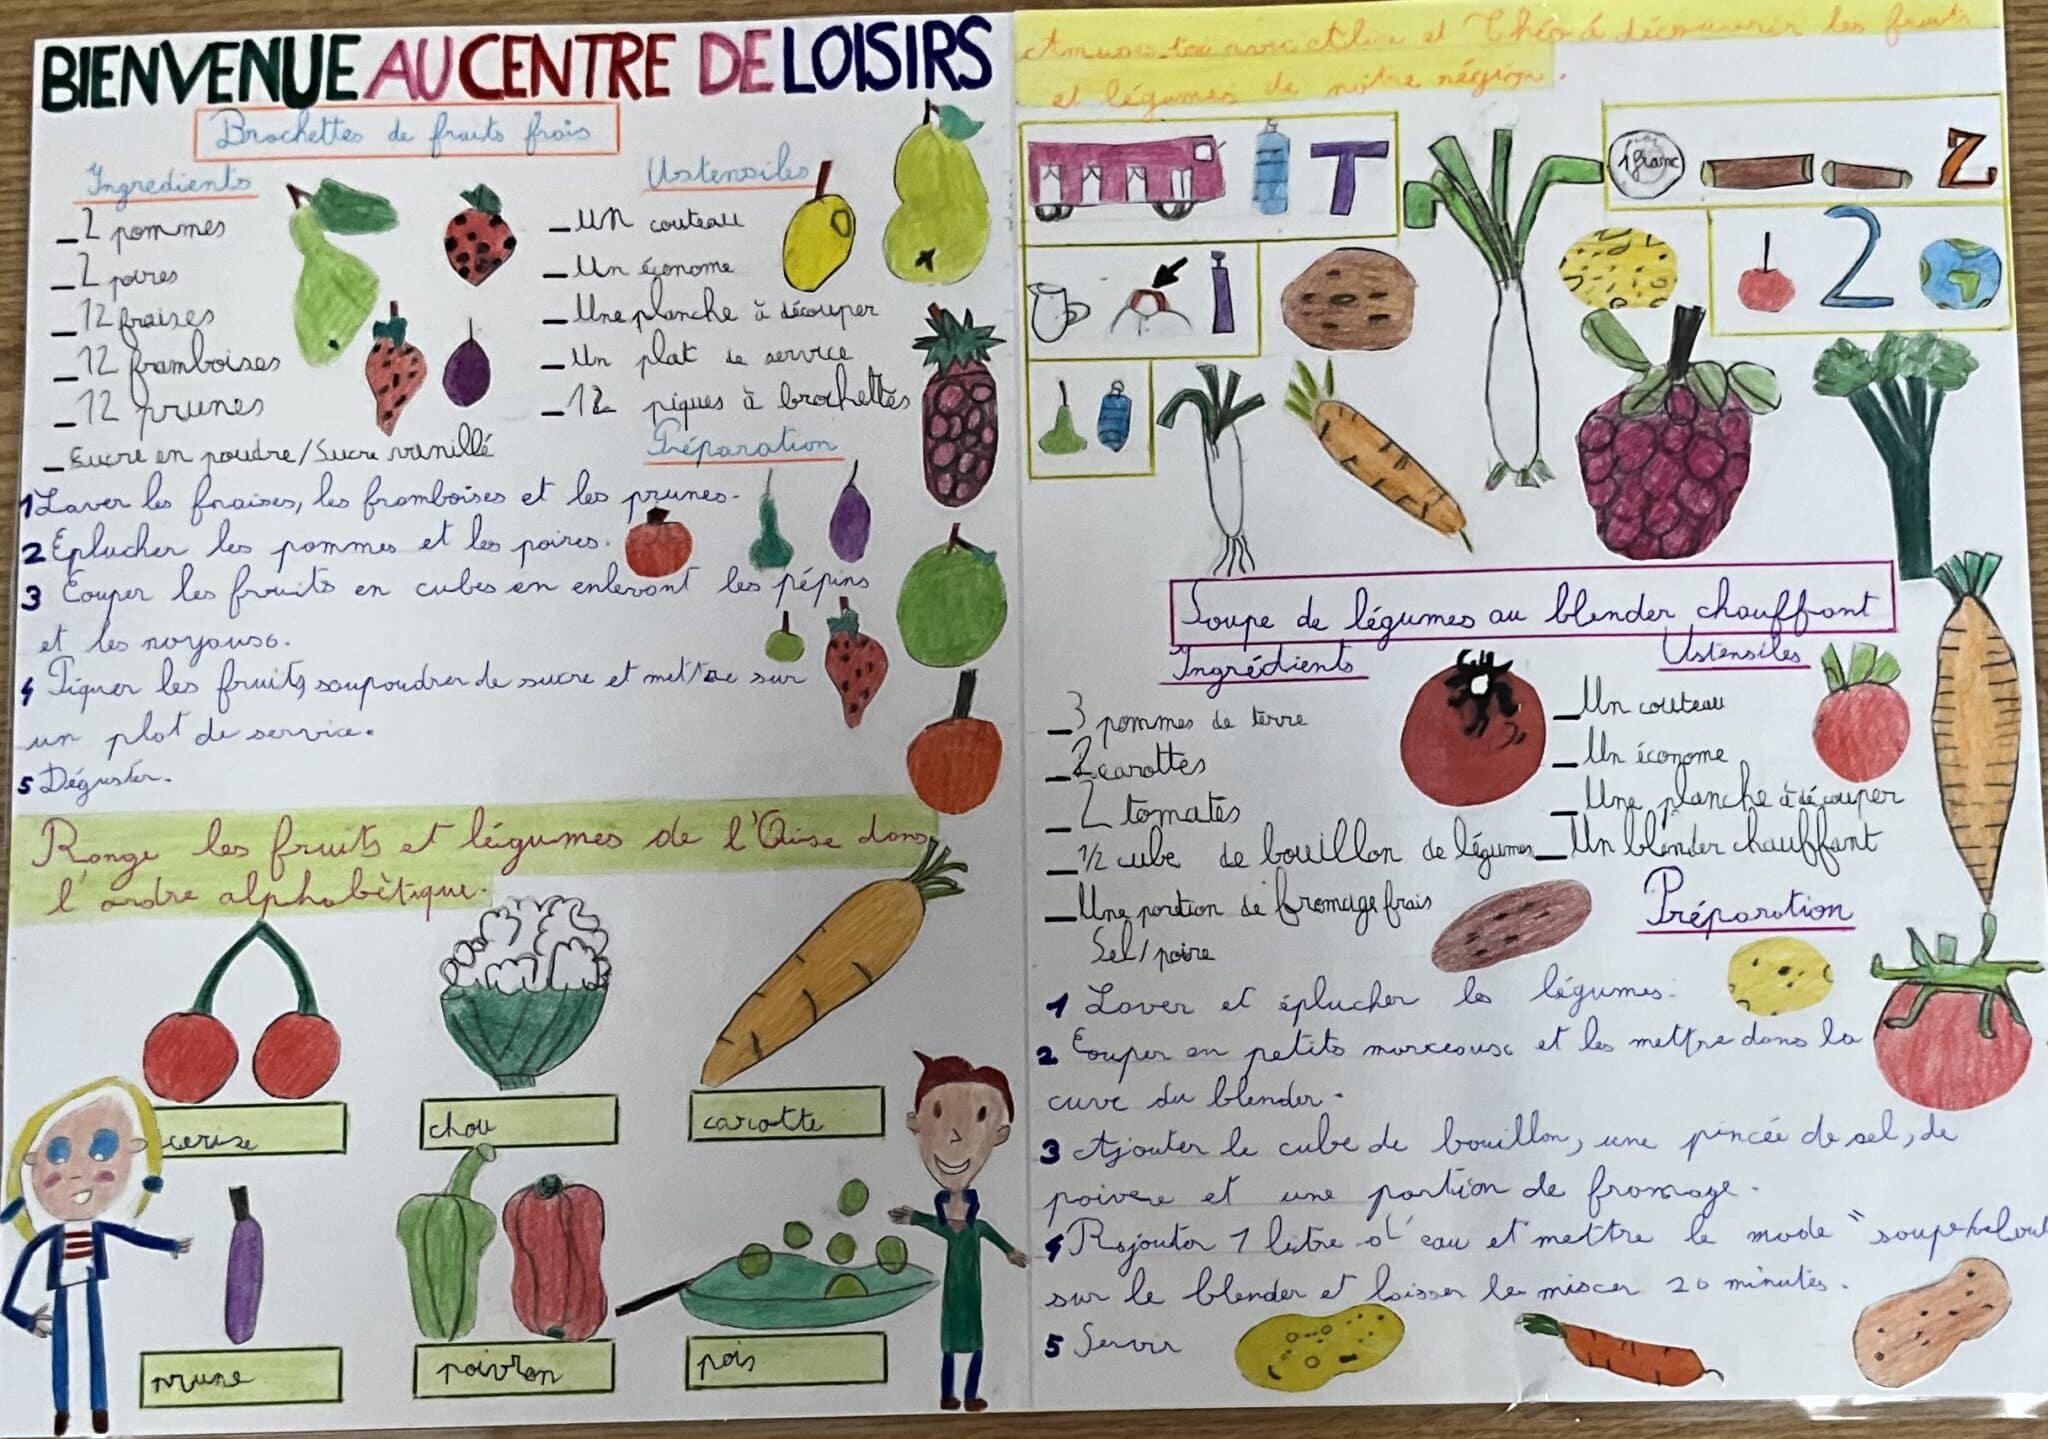 BIENVENUE AU CENTRE DE LOISIRS
Brochettes de fruits frais
Ingredients
_2 pommes
_2 poires
_12 fraises
_12 framboises
_12 prunes
_Sucre en poudre/Sucre vanillé
Ustensiles
_UN couteau
_Un économe
_Une planche à découper
_Un plat de service
_12 piques à brochettes
Préparation
1 Laver les fraises, les framboises et les prunes.
2 Eplucher les pommes et les poires.
3 Couper les fruits en cubes en enlevant les pépins
et les noyaux.
4 Piquer les fruits, soupoudrer de sucre et mettre sur
un plat de service.
5 Déguster.
Range les fruits et légumes de l'Oise dans
l'ordre alphabètique.
cerise
chou
carotte
prune
poivron
pois
Amuses-toi avec Alice et Théo à découvrir les fruits
et légumes de notre région.
T
1 franc
Z
I
2
Soupe de légumes au blender chauffant
Ingrédients
_3 pommes de terre
_2 carottes
_2 tomates
_1/2 cube de bouillon de légumes
_Une portion de fromage frais
Sel/poivre
Ustensiles
_Un couteau
_Un économe
_Une planche à découper
_Un blender chauffant
Préparation
1 Laver et éplucher les légumes.
2 Couper en petits morceaux et les mettre dans la
cuve du blender.
3 Ajouter le cube de bouillon, une pincée de sel, de
poivre et une portion de fromage.
4 Rajouter 1 litre d'eau et mettre le mode "soupe/velout
sur le blender et laisser le mixer 20 minutes.
5 Servir